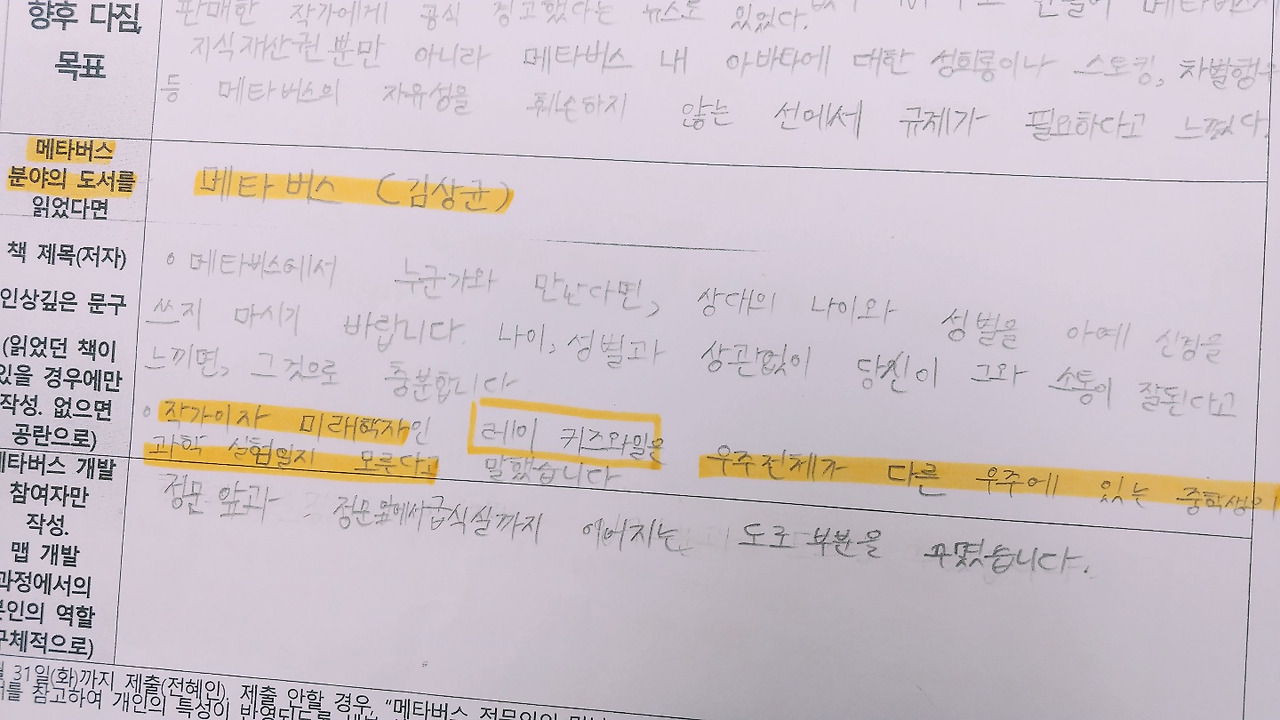 향후 다짐,
목표
판매한 작가에게 공식 경고했다는 뉴스도 있었다.
지식재산권 분만 아니라 메타버스 내 아바타에 대한 성희롱이나 스토킹, 차별행위
등 메타버스의 자유성을 훼손하지 않는 선에서 규제가 필요하다고 느꼈다.
메타버스
분야의 도서를
읽었다면
메타버스 (김상균)
책 제목(저자)
인상깊은 문구
(읽었던 책이
있을 경우에만
작성. 없으면
공란으로)
◦ 메타버스에서 누군가와 만난다면, 상대의 나이와 성별을 아예 신경을
쓰지 마시기 바랍니다. 나이, 성별과 상관없이 당신이 그와 소통이 잘된다고
느끼면, 그것으로 충분합니다
◦ 작가이자 미래학자인 레이 커즈와일은 우주전체가 다른 우주에 있는 중학생의
과학 실험일지 모른다고 말했습니다
메타버스 개발
참여자만
작성.
맵 개발
과정에서의
본인의 역할
(구체적으로)
정문 앞과 정문앞에서급식실까지 이어지는 도로 부분을 꾸몄습니다.
31일(화)까지 제출(전혜인). 제출 안할 경우, "메타버스
참고하여 개인의 특성이